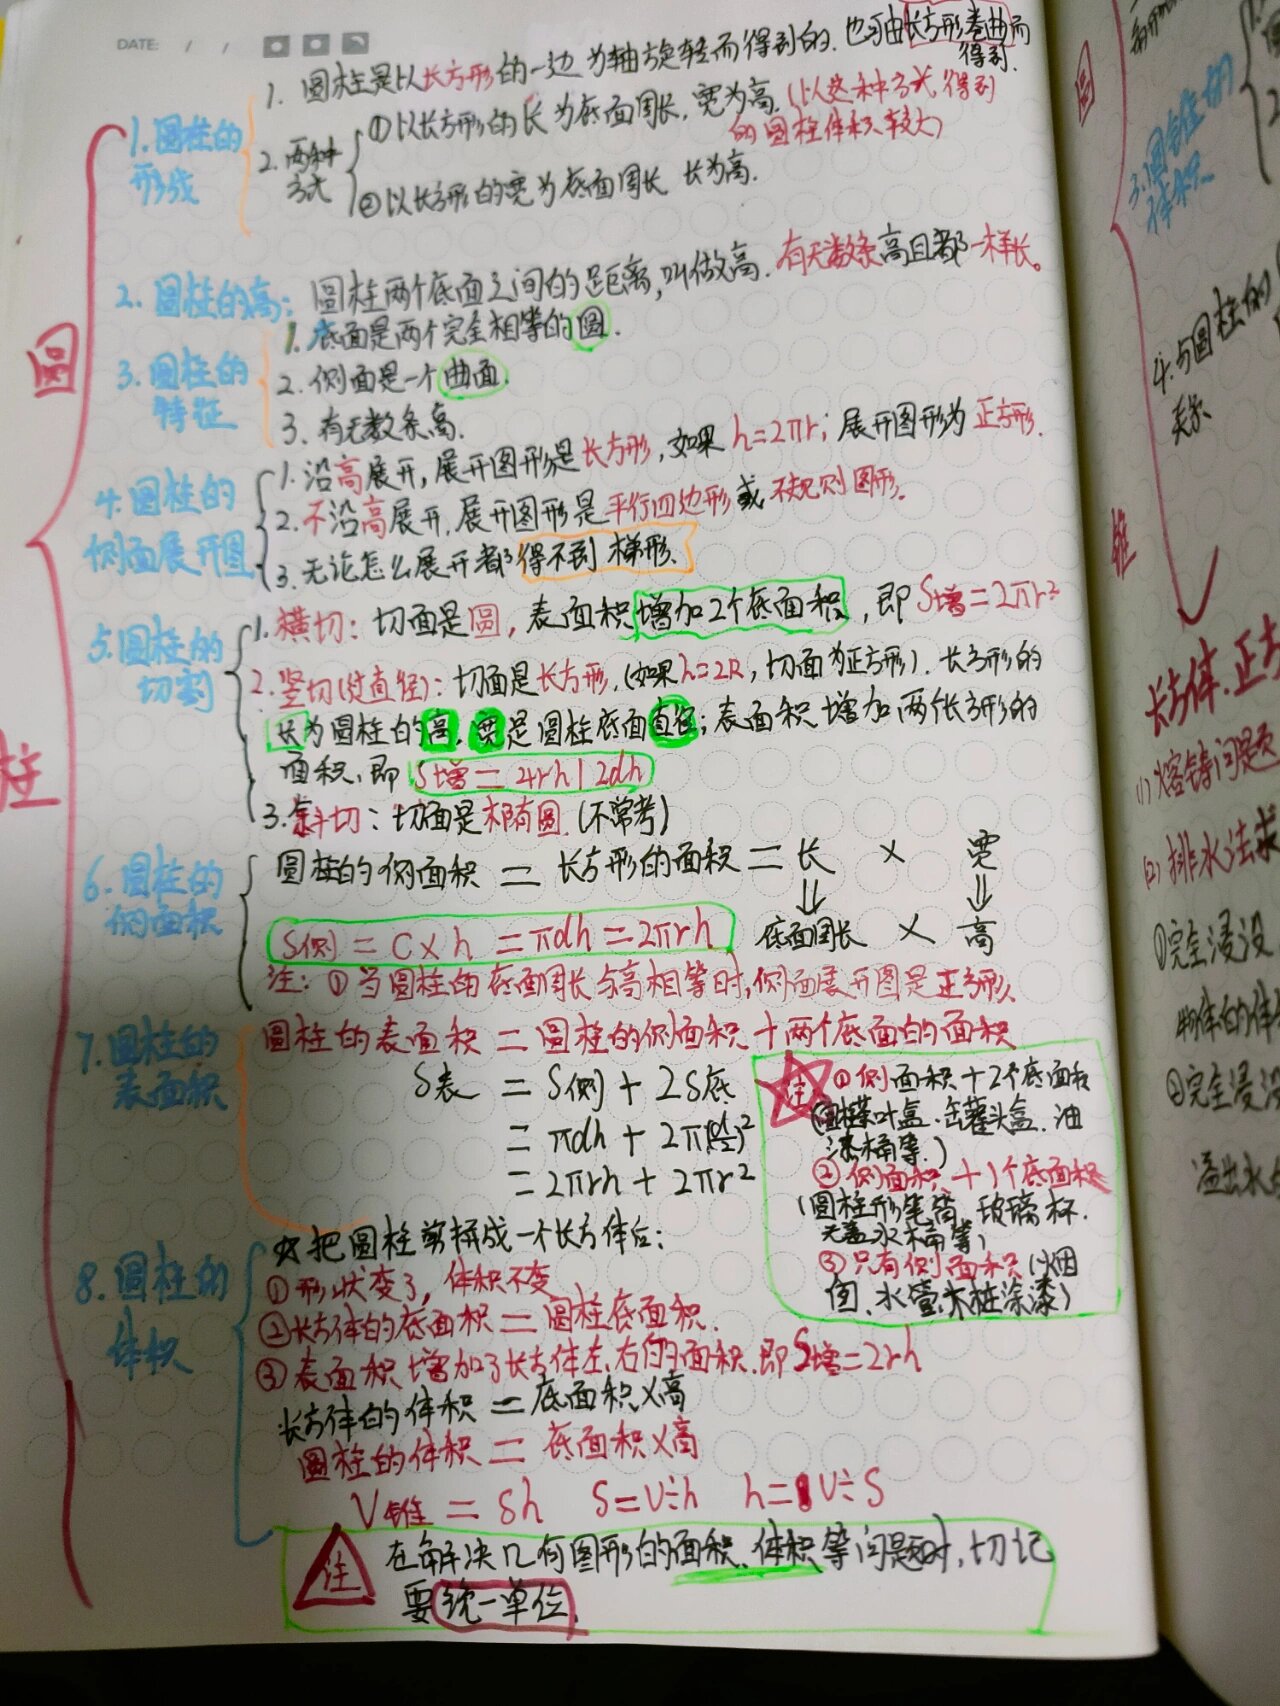 DATE: / /
圆柱
1.圆柱的形成
1. 圆柱是以长方形的一边为轴旋转而得到的.也可由长方形卷曲而得到.
2.两种方式
①以长方形的长为底面周长,宽为高.(以这种方式得到的圆柱体积较大)
②以长方形的宽为底面周长 长为高.
2.圆柱的高:圆柱两个底面之间的距离,叫做高.有无数条高且都一样长。
3.圆柱的特征
1.底面是两个完全相等的圆.
2.侧面是一个曲面.
3.有无数条高.
4.圆柱的侧面展开图
1.沿高展开,展开图形是长方形,如果h=2πr;展开图形为正方形.
2.不沿高展开,展开图形是平行四边形或不规则图形。
3.无论怎么展开都得不到梯形.
5.圆柱的切割
1.横切:切面是圆,表面积增加2个底面积,即S增=2πr²
2.竖切(过直径):切面是长方形.(如果h=2R,切面为正方形).长方形的
长为圆柱的高.宽是圆柱底面直径;表面积增加两个长方形的
面积,即 S增=4rh|2dh
3.斜切:切面是椭圆.(不常考)
6.圆柱的侧面积
圆柱的侧面积=长方形的面积=长 × 宽
⇓ ⇓
底面周长 × 高
S侧=C×h=πdh=2πrh
注:①当圆柱的底面周长与高相等时,侧面展开图是正方形.
7.圆柱的表面积
圆柱的表面积=圆柱的侧面积+两个底面的面积
S表=S侧+2S底
=πdh+2π(d/2)²
=2πrh+2πr²
注
①侧面积+2个底面积
(圆柱茶叶盒.罐头盒.油
漆桶等.)
②侧面积+1个底面积
(圆柱形笔筒.玻璃杯.
无盖水桶等)
③只有侧面积(烟
囱.水管.木桩涂漆)
8.圆柱的体积
☆把圆柱剪拼成一个长方体后:
①形状变了,体积不变
②长方体的底面积=圆柱底面积.
③表面积增加了长方体左、右的面积.即S增=2rh
长方体的体积=底面积×高
圆柱的体积=底面积×高
V锥=Sh S=V÷h h=V÷S
注
在解决几何图形的面积、体积等问题时,切记
要统一单位.
圆
锥
3.圆锥的体积
4.与圆柱的
关系
长方体.正方
(1)熔铸问题
(2)排水法求
①完全浸没
物体的体
②完全浸没
溢出水